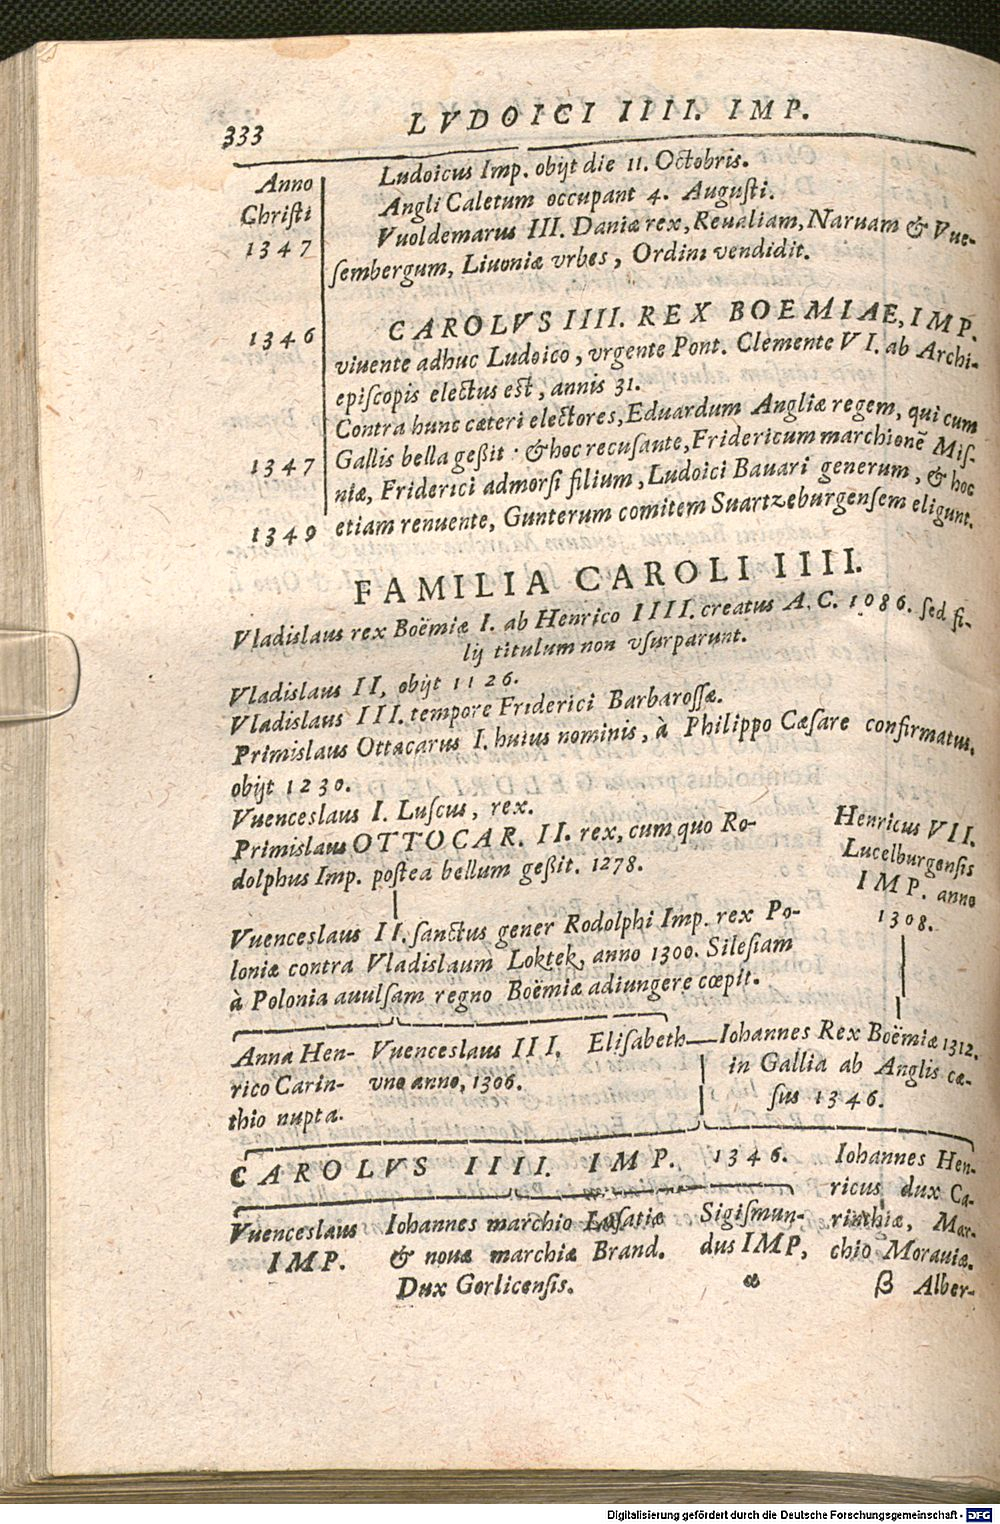 333 LVDOICI IIII. IMP.
Anno Christi
Ludoicus Imp. obijt die 11. Octobris.
Angli Caletum occupant 4. Augusti.
1347 Vuoldemarus III. Daniæ rex, Reualiam, Naruam & Vue-
sembergum, Liuoniæ vrbes, Ordini vendidit.
1346 CAROLVS IIII. REX BOEMIAE, IMP.
viuente adhuc Ludoico, vrgente Pont. Clemente VI. ab Archi-
episcopis electus est, annis 31.
Contra hunc cæteri electores, Eduardum Angliæ regem, qui cum
1347 Gallis bella geßit · & hoc recusante, Fridericum marchionē Mis-
niæ, Friderici admorsi filium, Ludoici Bauari generum, & hoc
1349 etiam renuente, Gunterum comitem Suartzeburgensem eligunt.
FAMILIA CAROLI IIII.
Vladislaus rex Boëmiæ I. ab Henrico IIII. creatus A. C. 1086. sed fi-
lij titulum non vsurparunt.
Vladislaus II, obijt 1126.
Vladislaus III. tempore Friderici Barbarossæ.
Primislaus Ottacarus I. huius nominis, à Philippo Cæsare confirmatus,
obijt 1230.
Vuenceslaus I. Luscus, rex.
Primislaus OTTOCAR. II. rex, cum quo Ro-
dolphus Imp. postea bellum geßit. 1278.
Henricus VII.
Lucelburgensis
IMP. anno
1308.
Vuenceslaus II. sanctus gener Rodolphi Imp. rex Po-
loniæ contra Vladislaum Loktek, anno 1300. Silesiam
à Polonia auulsam regno Boëmiæ adiungere cœpit.
Anna Hen-
rico Carin-
thio nupta.
Vuenceslaus III,
vno anno, 1306.
Elisabeth
Iohannes Rex Boëmiæ 1312.
in Gallia ab Anglis cæ-
sus 1346.
CAROLVS IIII. IMP. 1346.
Iohannes Hen-
ricus dux Ca-
rinthiæ, Mar-
chio Morauiæ.
β Alber-
Vuenceslaus
IMP.
Iohannes marchio Lusatiæ
& nouæ marchiæ Brand.
Dux Gorlicensis.
Sigismun-
dus IMP,
α
Digitalisierung gefördert durch die Deutsche Forschungsgemeinschaft - DFG